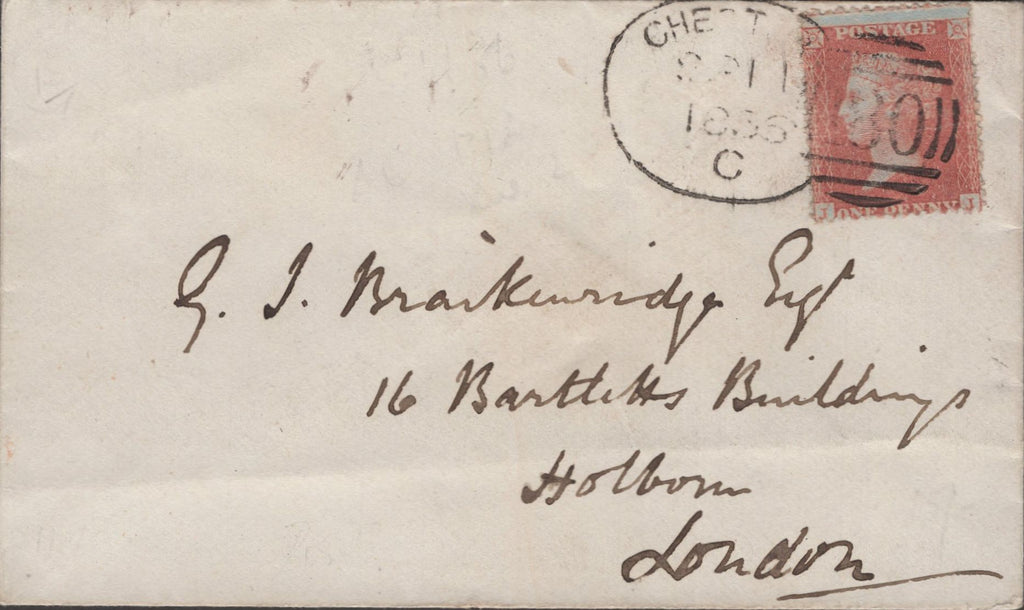 CHEST
SP 11
1856
C
POSTAGE
ONE PENNY
J J
G. J. Braikenridge Esqr
16 Bartletts Buildings
Holborn
London